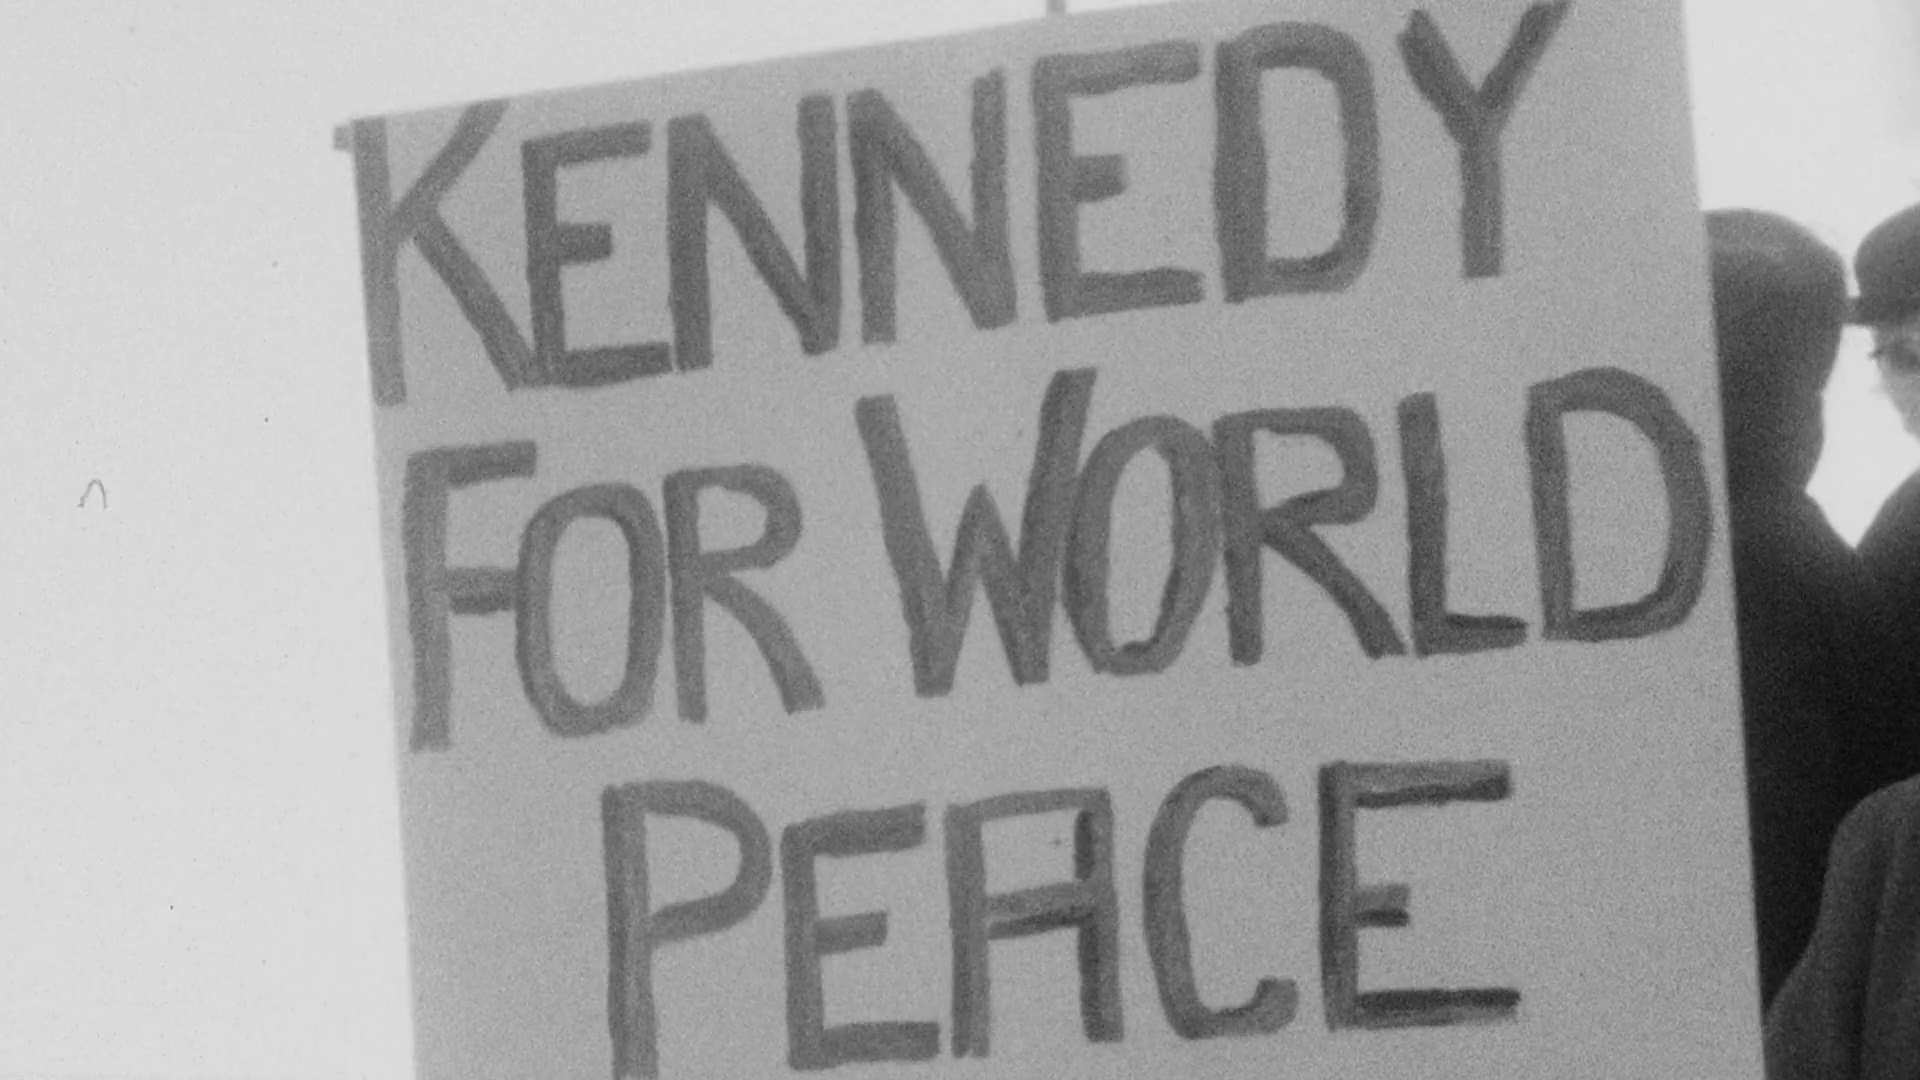 KENNEDY
FOR WORLD
PEACE